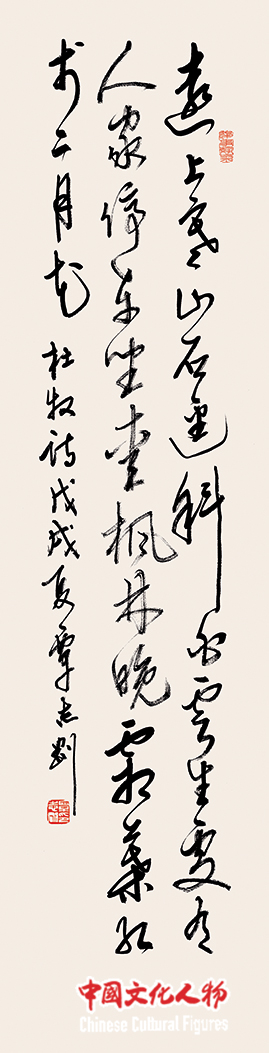 遠上寒山石逕斜白雲生處有
人家停車坐愛楓林晚霜葉紅
於二月花 杜牧詩戊戌夏覃志剛
中國文化人物
Chinese Cultural Figures